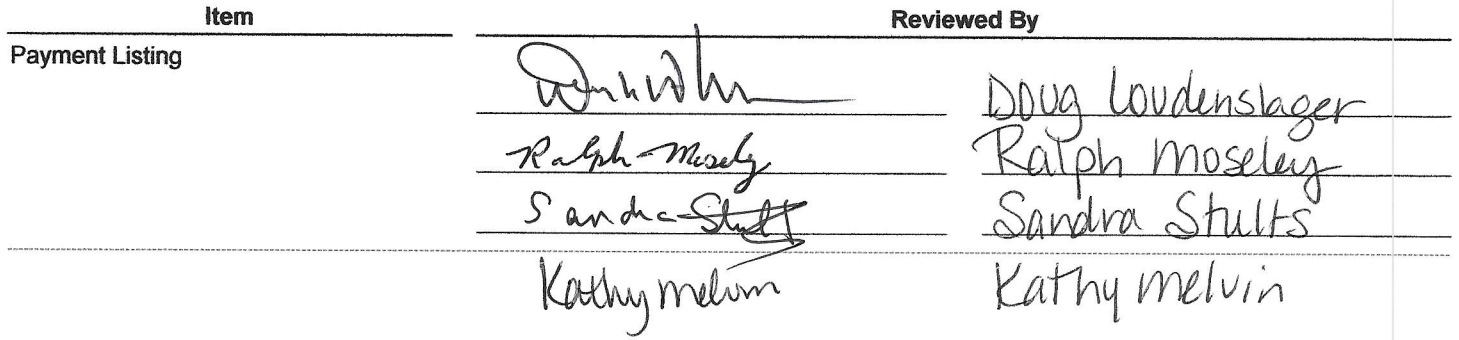 Item Reviewed By
Payment Listing
Doug Loudenslager
Ralph Mosely Ralph Moseley
Sandra Stults Sandra Stults
Kathy melvin Kathy melvin